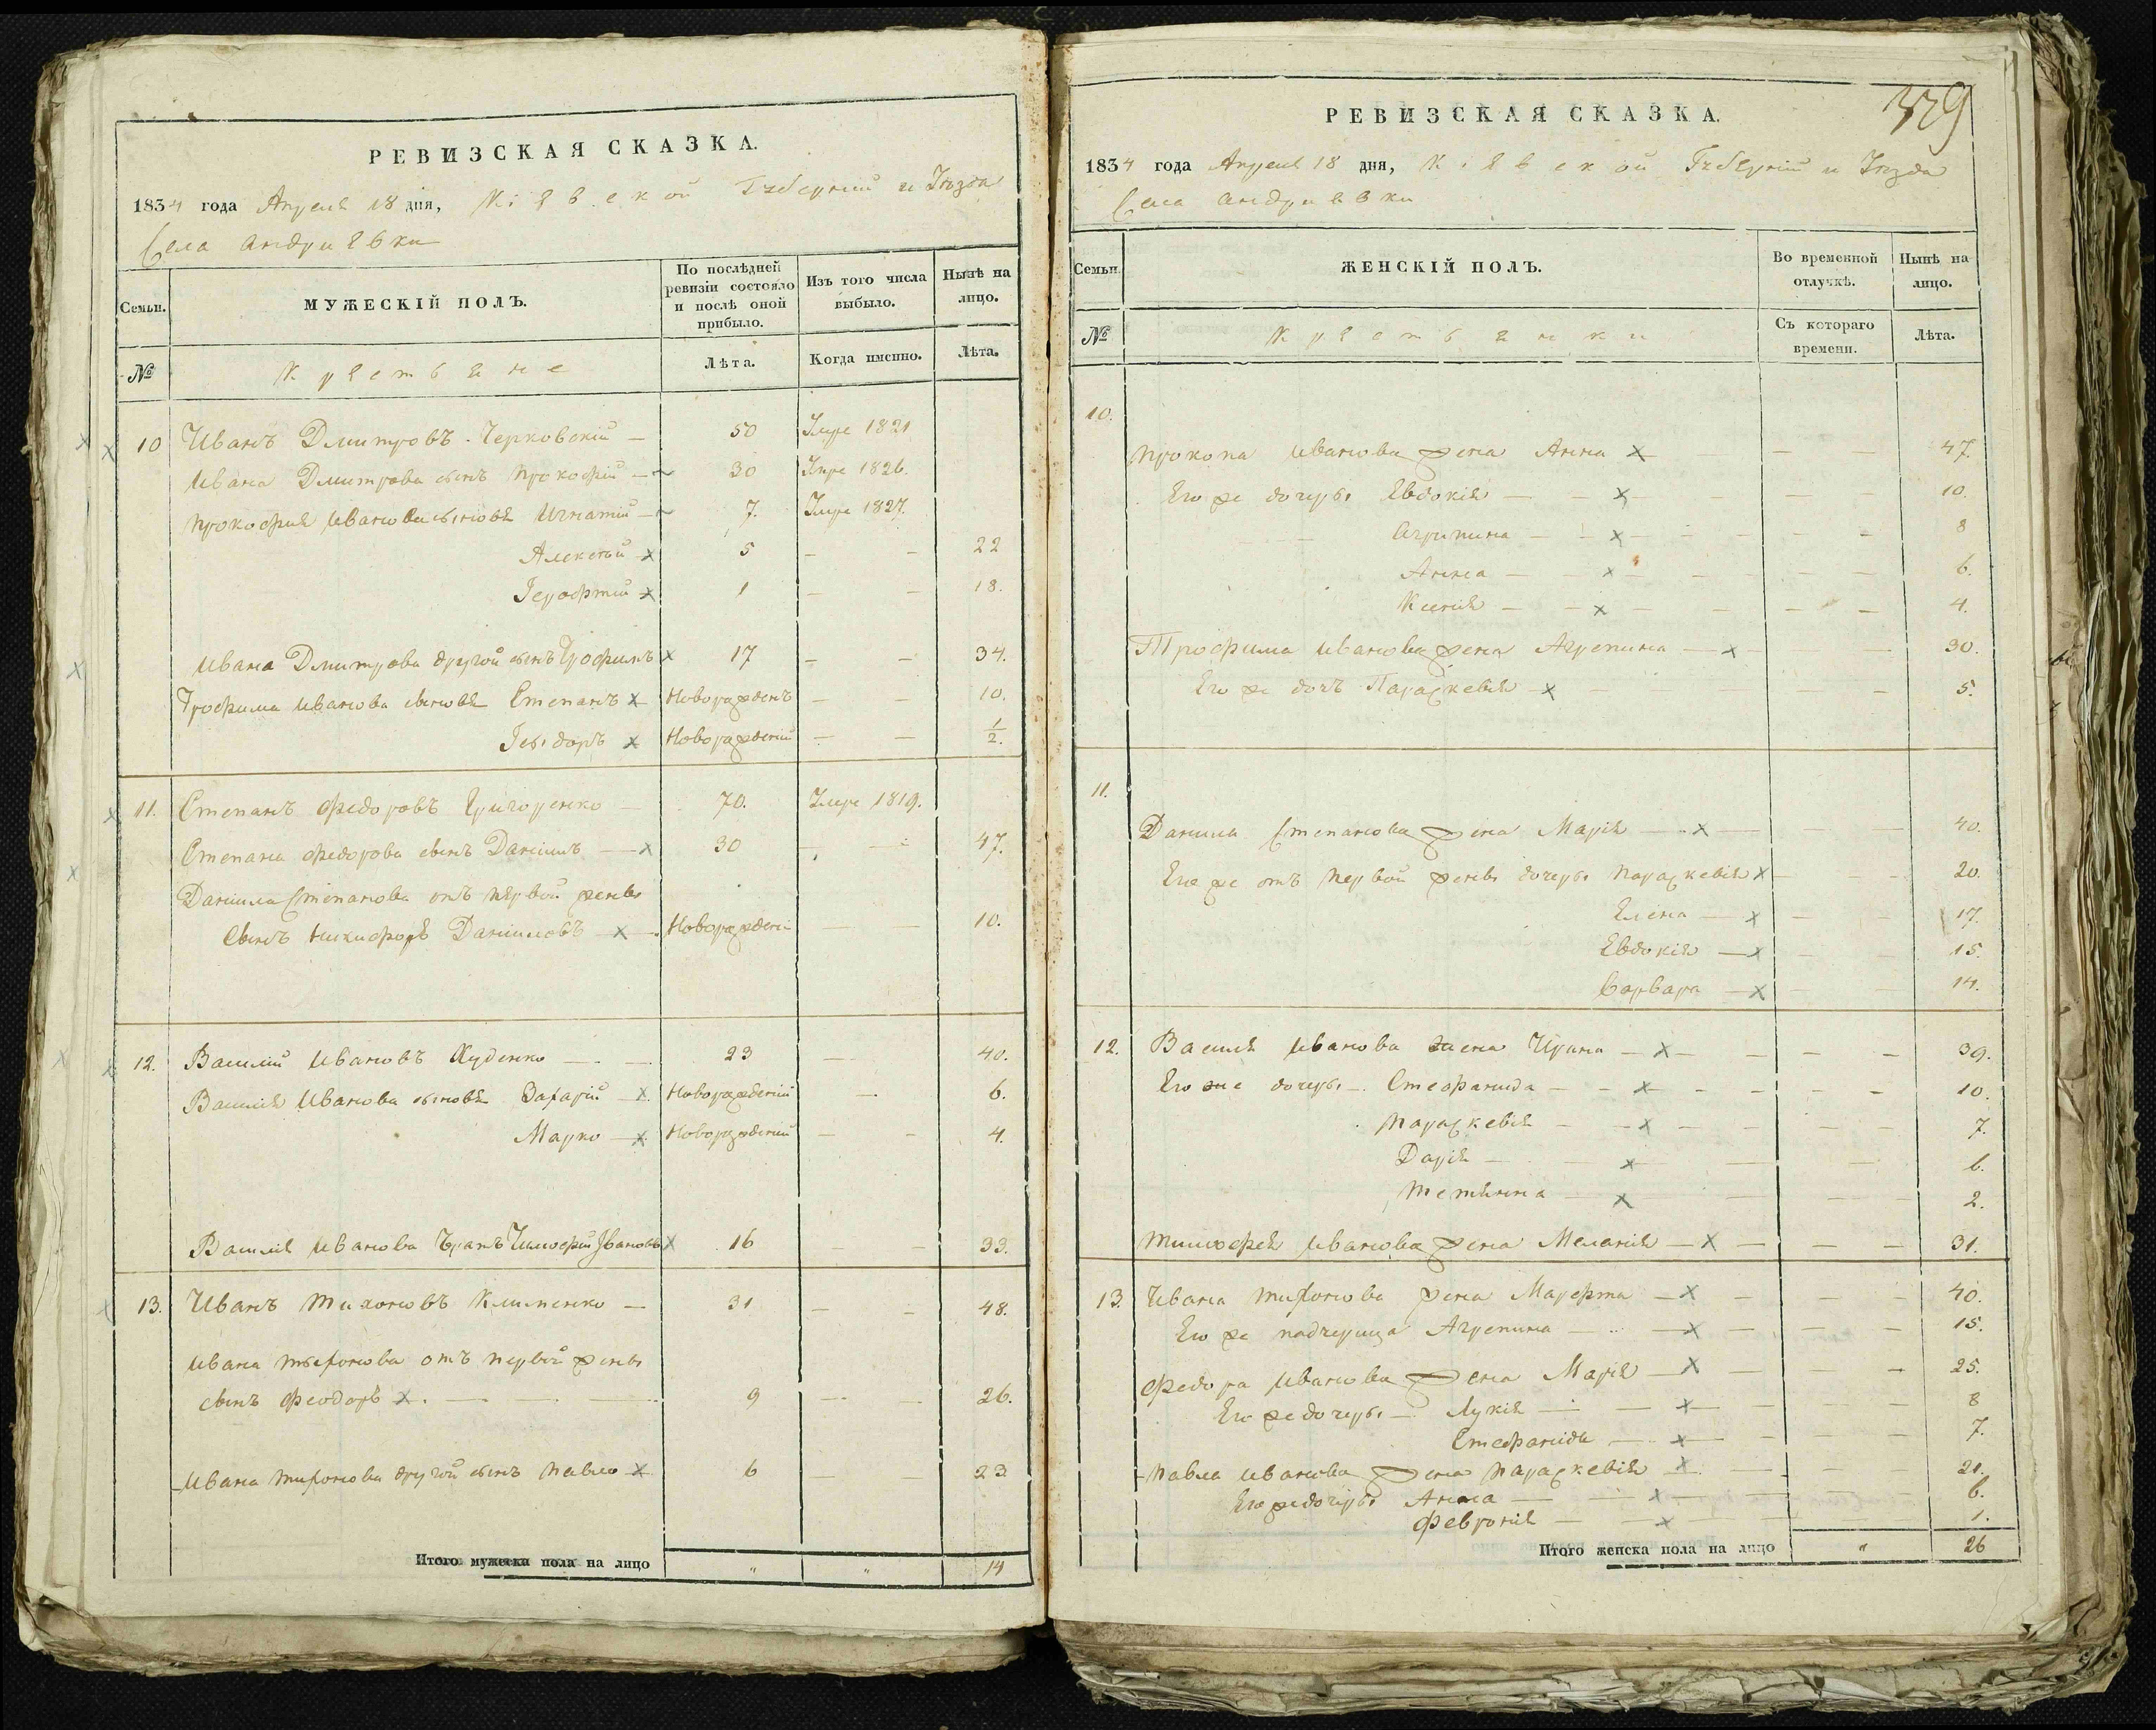 РЕВИЗСКАЯ СКАЗКА.
1834 года Апреля 18 дня, Кіевской Губерніи и Уѣзда
Села Андриевки
Семьи. МУЖЕСКІЙ ПОЛЪ. По послѣдней ревизіи состояло и послѣ оной прибыло. Изъ того числа выбыло. Нынѣ на лицо.
№ Крестьяне Лѣта. Когда именно. Лѣта.
10 Иванъ Дмитровъ Черковскій — 50 Умре 1821
Ивана Дмитрова сынъ Прокофій — 30 Умре 1826.
Прокофия Иванова сыновя Игнатій — 7. Умре 1827.
Алексѣй х 5 — — 22
Іерофтій х 1 — — 18.
Ивана Дмитрова другой сынъ Трофимъ х 17 — — 34.
Трофима Иванова сыновя Степанъ х Новорожденъ — — 10.
Ісидоръ х Новорожденій — — 1/2.
11. Степанъ Федоровъ Григоренко — 70. Умре 1819.
Степана Федорова сынъ Даніилъ — х 30 — — 47.
Даніила Степанова отъ первой жены
сынъ Никифоръ Даниловъ — х Новорожденъ — — 10.
12. Василий Ивановъ Худенко — — 23 — 40.
Василия Иванова сыновя Захарій — х Новорожденій — 6.
Марко — х Новорожденій — — 4.
Василия Иванова братъ Тимофій Івановъ х 16 — — 33.
13. Иванъ Тихоновъ Клименко — 31 — — 48.
Ивана Тихонова отъ первой жены
сынъ Феодоръ х — — — 9 — — 26.
Ивана Тихонова другой сынъ Павло х 6 23
Итого мужеска пола на лицо " " 14
РЕВИЗСКАЯ СКАЗКА.
1834 года Апреля 18 дня, Кіевской Губерніи и Уѣзда
Села Андриевки
Семьи. ЖЕНСКІЙ ПОЛЪ. Во временной отлучкѣ. Нынѣ на лицо.
№ Крестьянки Съ котораго времени. Лѣта.
10.
Прокопа Иванова жена Анна х — — 47.
Его же дочеры Евдокія — — х — — 10.
Агрипина — — х — — 8
Анна — — х — — 6.
Ксенія — — х — — 4.
Трофима Иванова жена Агрепина — х — — 30.
Его же дочъ Параскевія — х — — 5.
11.
Данила Степанова жена Марія — х — — 40.
Его же отъ первой жены дочеры Параскевія х — — 20.
Елена — х — — 17.
Евдокія — х — — 15.
Варвара — х — — 14.
12. Василя Иванова жена Ирина — х — — — 39.
Его же дочеры — Стефанида — — х — — 10.
Параскевія — — х — — 7.
Дарія — — х — — 6.
Тетянна — х — — 2.
Тимофея Иванова жена Меланія — х — — — 31.
13. Ивана Тихонова жена Марфта — х — — — 40.
Его же падчерица Агрепина — — х — — — 15.
Федора Иванова жена Марія — х — — — 25.
Его же дочеры — Лукія — — х — — — 8
Стефаніда — — х — — — 7.
Павла Иванова жена Параскевія х — — 21.
Его же дочеры Анна — — х — — — 6.
Февронія — — х — — 1.
Итого женска пола на лицо " 26